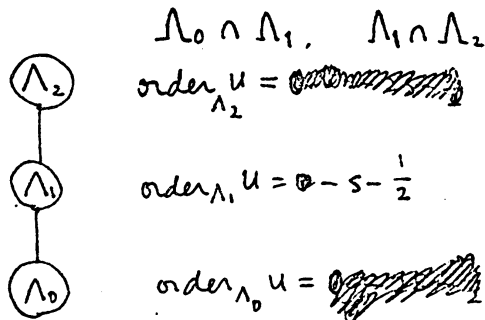 Λ₀ ∩ Λ₁, Λ₁ ∩ Λ₂
Λ₂ order_Λ₂ u =
Λ₁ order_Λ₁ u = - s - 1/2
Λ₀ order_Λ₀ u =